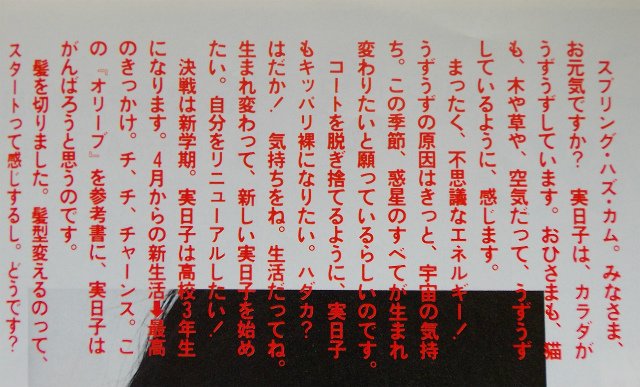 スプリング・ハズ・カム。みなさま、
お元気ですか? 実日子は、カラダが
うずうずしています。おひさまも、猫
も、木や草や、空気だって、うずうず
しているように、感じます。
まったく、不思議なエネルギー!
うずうずの原因はきっと、宇宙の気持
ち。この季節、惑星のすべてが生まれ
変わりたいと願っているらしいのです。
コートを脱ぎ捨てるように、実日子
もキッパリ裸になりたい。ハダカ?
はだか! 気持ちをね。生活だってね。
生まれ変わって、新しい実日子を始め
たい。自分をリニューアルしたい!
決戦は新学期。実日子は高校3年生
になります。4月からの新生活➡最高
のきっかけ。チ、チ、チャーンス。こ
の『オリーブ』を参考書に、実日子は
がんばろうと思うのです。
髪を切りました。髪型変えるのって、
スタートって感じするし。どうです?